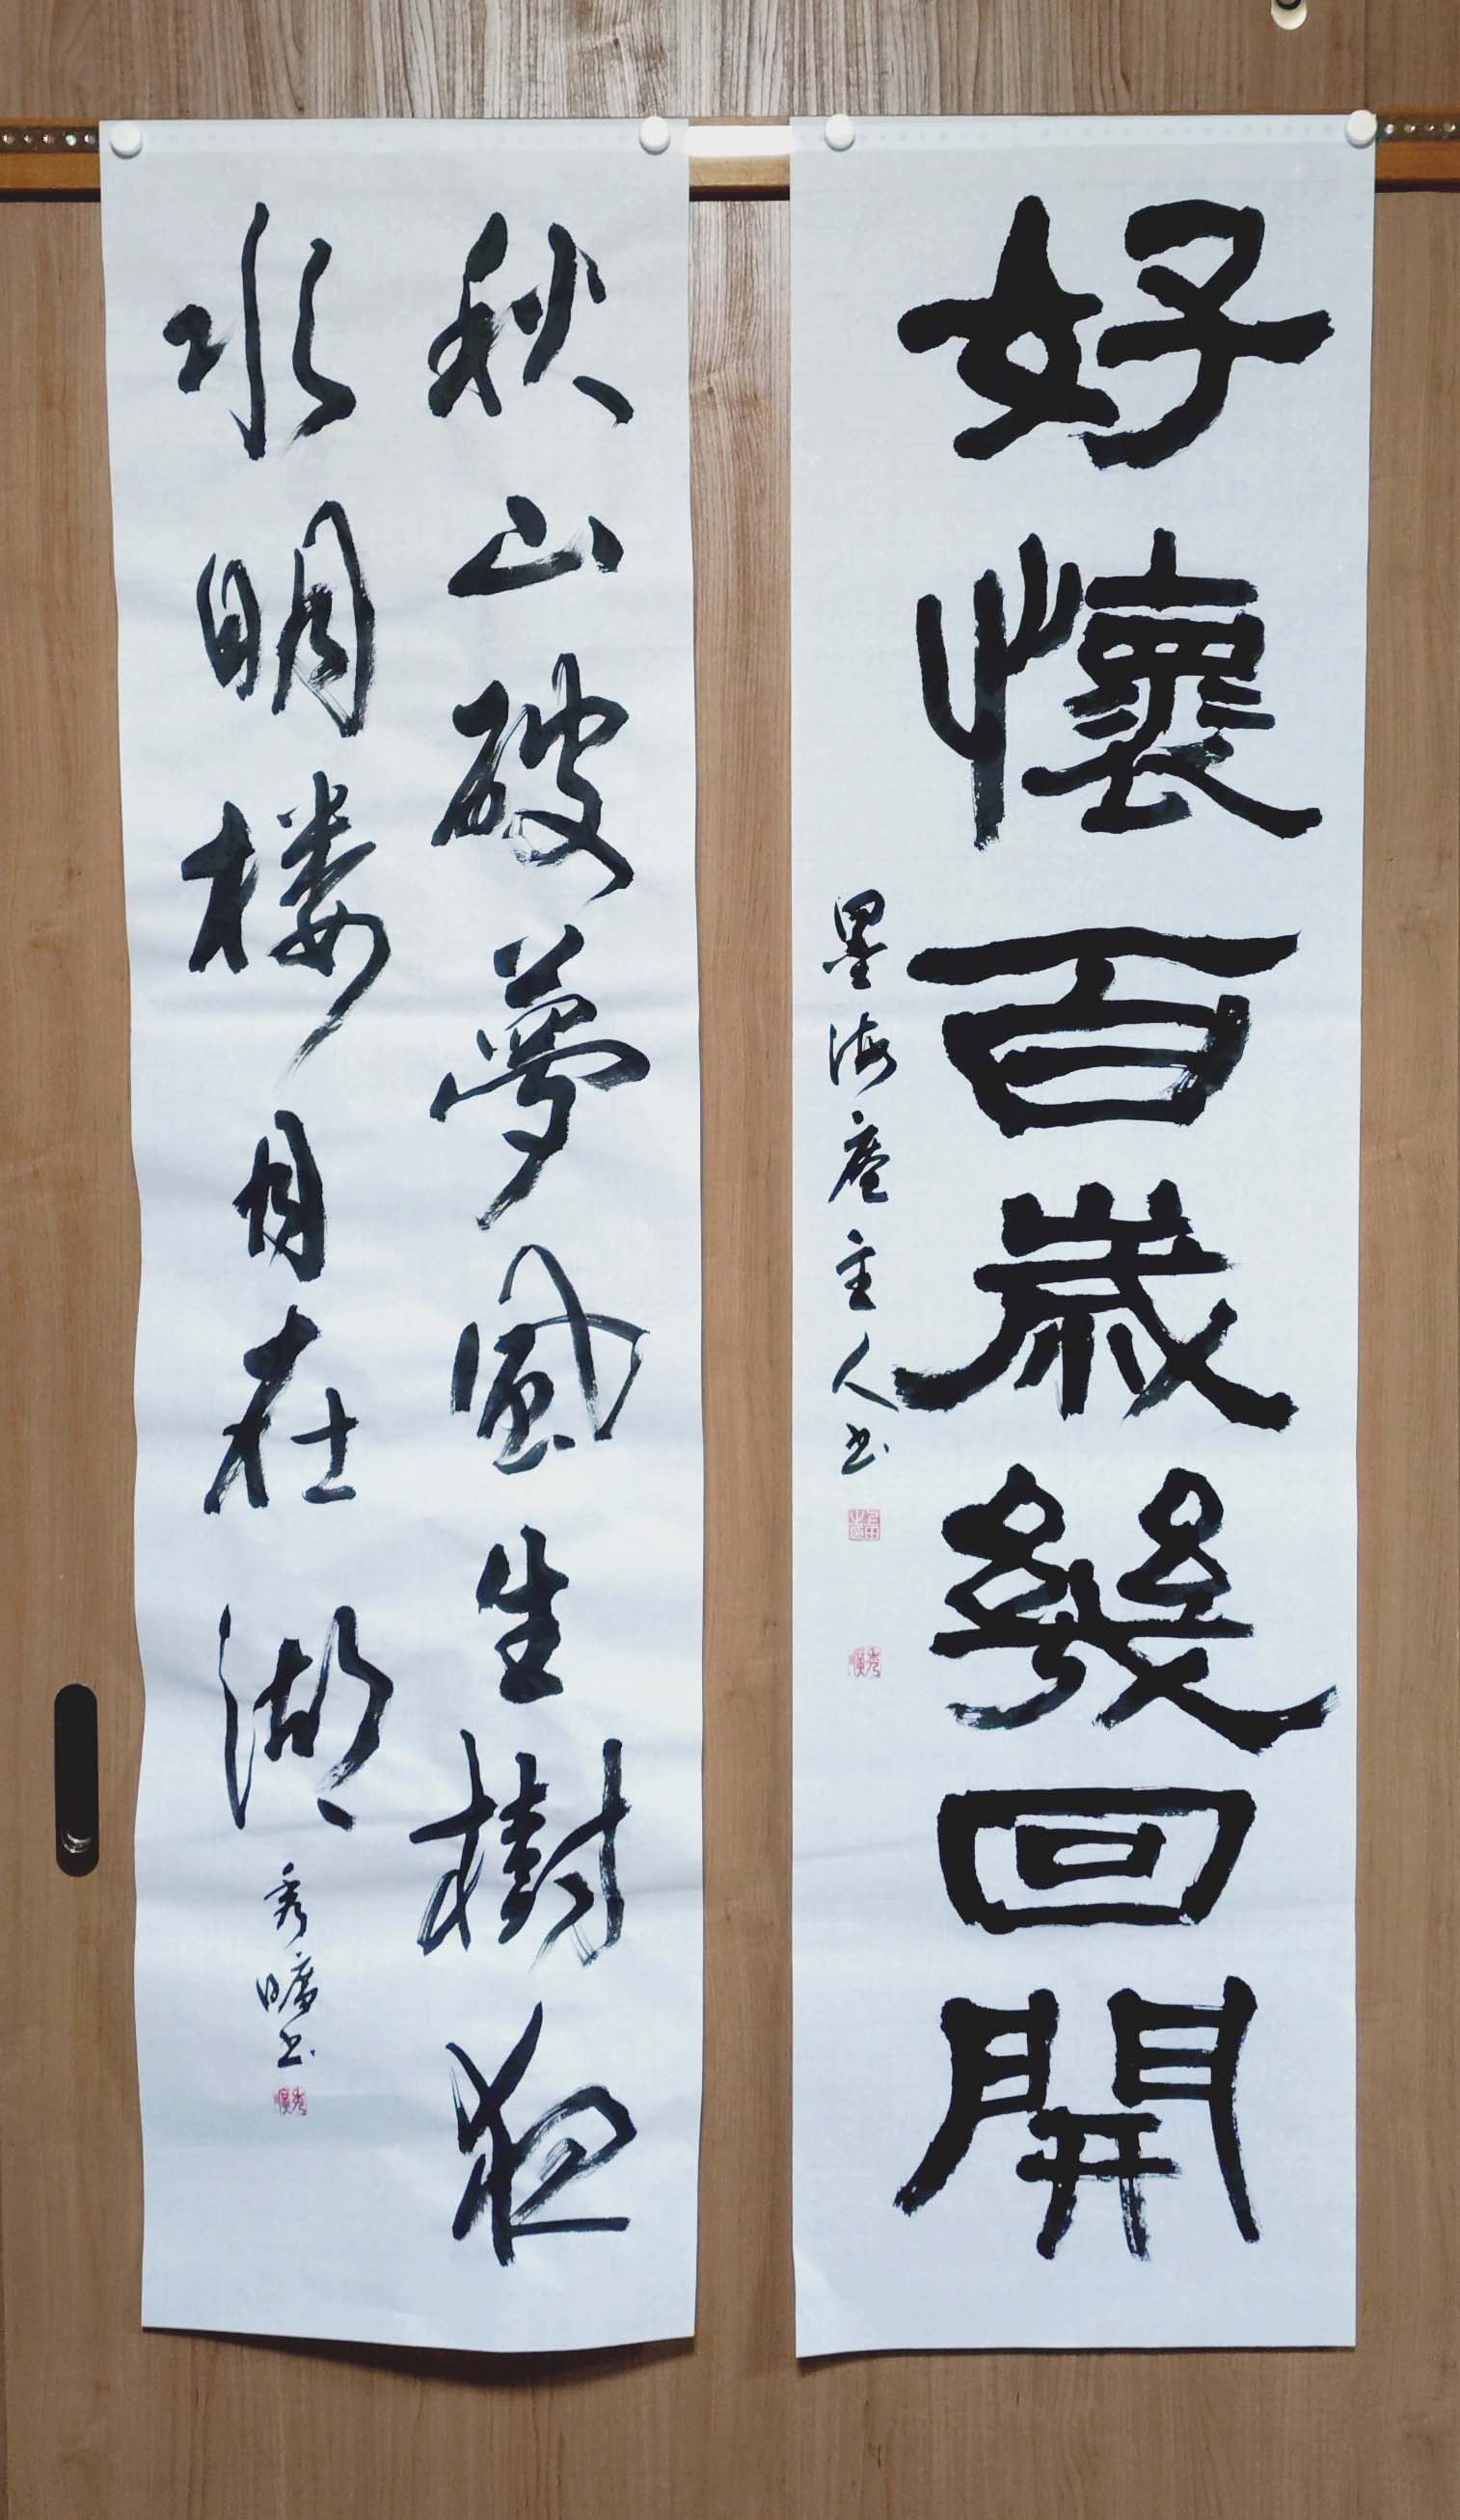 好懷百歲幾回開
墨海庵主人书
秋山破夢風生樹夜
水明楼月在湖
秀曠书